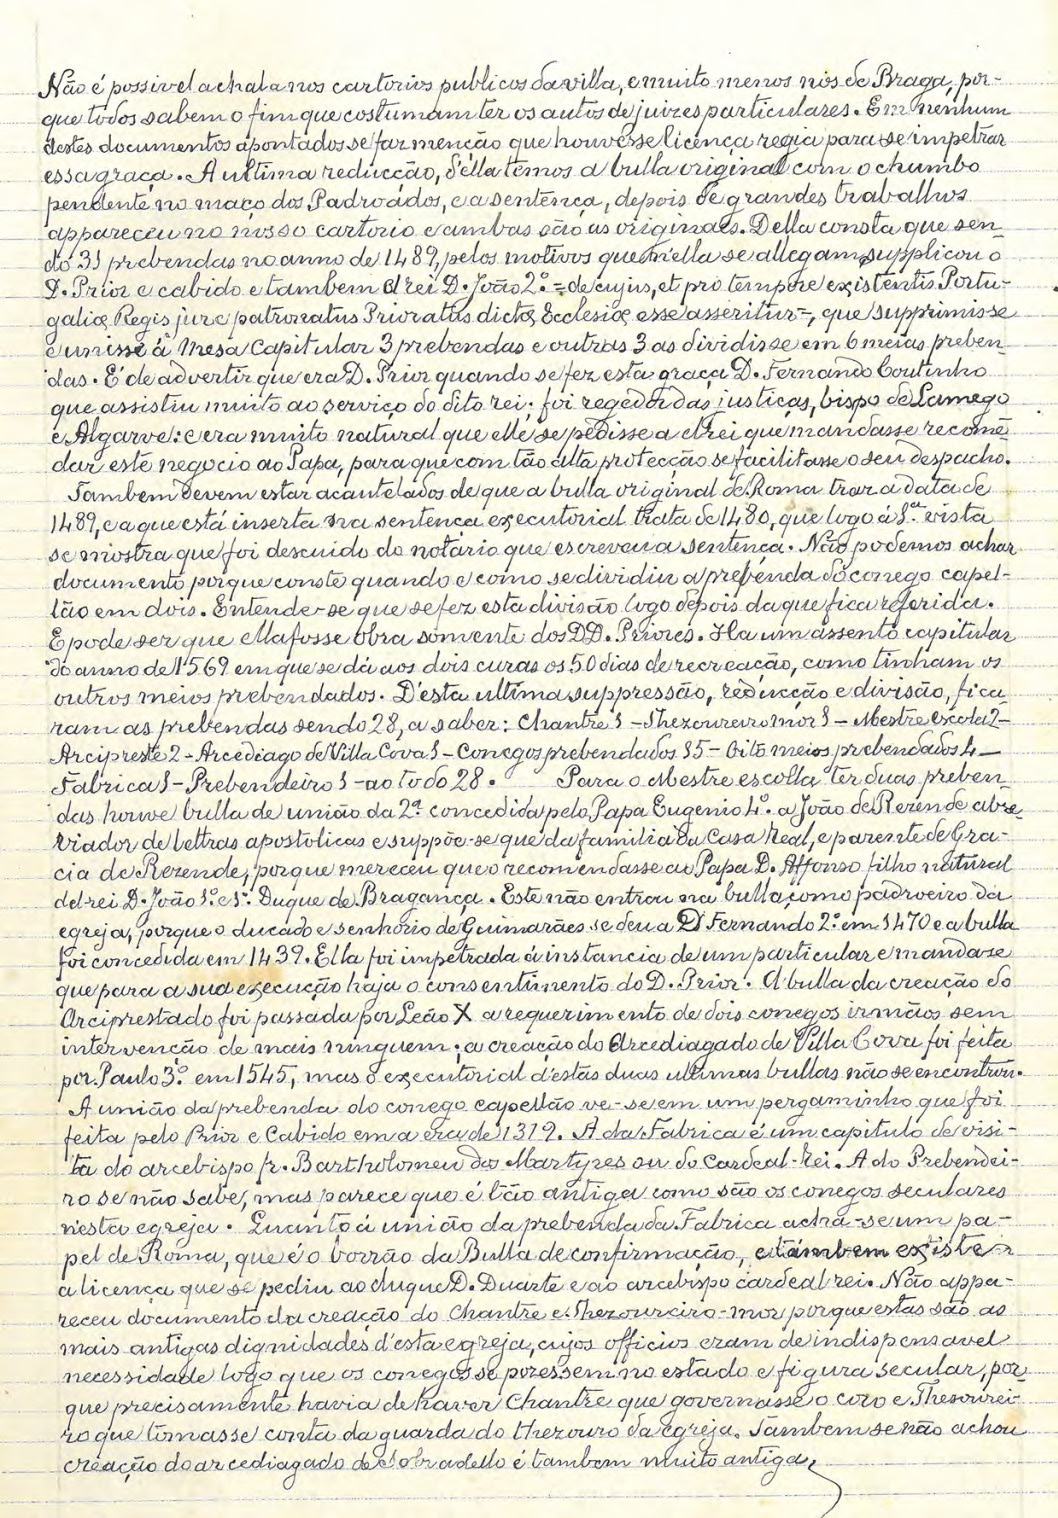 Não é possivel achala nos cartorios publicos da villa, e muito menos nos de Braga, por-
que todos sabem o fim que costumam ter os autos de juizes particulares. Em nenhum
destes documentos apontados se faz menção que houvesse licença regia para se impetrar
essa graça. A ultima reducção, d'ella temos a bulla original com o chumbo
pendente no maço dos Padroádos, e a sentença, depois de grandes trabalhos
appareceu no nosso cartorio e ambas são as originaes. Della consta que sen-
do 31 prebendas no anno de 1489, pelos motivos que n'ella se allegam supplicou o
D. Prior e cabido e tambem el rei D. João 2.º = de cujus, et pro tempore existentis Portu-
galiæ Regis jure patronatus Prioratus dictæ Ecclesiæ esse asseritur =, que supprimisse
e unisse á Mesa Capitular 3 prebendas e outras 3 as dividisse em 6 meias preben-
das. É de advertir que era D. Prior quando se fez esta graça D. Fernando Coutinho
que assistiu muito ao serviço do dito rei; foi regedor das justiças, bispo de Lamego
e Algarve: e era muito natural que elle se pedisse a elrei que mandasse recomē-
dar este negocio ao Papa, para que com tão alta protecção se facilitasse o seu despacho.
Tambem devem estar acautelados de que a bulla original de Roma traz a data de
1489, e a que está inserta na sentença executorial trata de 1480, que logo á 1.ª vista
se mostra que foi descuido do notário que escreveu a sentença. Não podemos achar
documento porque conste quando e como se dividiu a prebenda do conego capel-
lão em dois. Entende-se que se fez esta divisão logo depois da que fica referida.
E pode ser que ella fosse obra sómente dos DD. Priores. Ha um assento capitular
do anno de 1569 em que se dá aos dois curas os 50 dias de recreação, como tinham os
outros meios prebendados. D'esta ultima suppressão, reducção e divisão, fica
ram as prebendas sendo 28, a saber: Chantre 1 - Thezoureiro mór 1 - Mestre escola 2 -
Arcipreste 2 - Arcediago de Villa Cova 1 - Conegos prebendados 15 - Oito meios prebendados 4 -
Fabrica 1 - Prebendeiro 1 - ao todo 28. Para o Mestre escolla ter duas preben-
das houve bulla de união da 2.ª concedida pelo Papa Eugenio 4.º a João de Rezende abre-
viador de lettras apostolicas e suppõe-se que da familia da Casa Real, e parente de Gra-
cia de Rezende, porque mereceu que o recomendasse ao Papa D. Affonso filho natural
del rei D. João 1.º e 1.º Duque de Bragança. Este não entrou na bulla como padroeiro da
egreja, porque o ducado e senhorio de Guimarães se deu a D. Fernando 2.º em 1470 e a bulla
foi concedida em 1439. Ella foi impetrada á instancia de um particular e manda se
que para a sua execução haja o consentimento do D. Prior. A bulla da creação do
Arciprestado foi passada por Leão X a requerimento de dois conegos irmãos sem
intervenção de mais ninguem; a creação do Arcediagado de Villa Cova foi feita
por Paulo 3.º em 1545, mas o executorial d'estas duas ultimas bullas não se encontrou.
A união da prebenda do conego capellão ve-se em um pergaminho que foi
feita pelo Prior e Cabido em a era de 1319. A da Fabrica é um capitulo de visi-
ta do arcebispo fr. Bartholomeu dos Martyres ou do Cardeal-Rei. A do Prebendei-
ro se não sabe, mas parece que é tão antiga como são os conegos seculares
n'esta egreja. Quanto á união da prebenda da Fabrica acha-se um pa-
pel de Roma, que é o borrão da Bulla de confirmação, e tambem existe
a licença que se pediu ao duque D. Duarte e ao arcebispo cardeal rei. Não appa-
receu documento da creação do Chantre e Thezoureiro-mor porque estas são as
mais antigas dignidades d'esta egreja, cujos officios eram de indispensavel
necessidade logo que os conegos se pozessem no estado e figura secular, por-
que precisamente havia de haver Chantre que governasse o coro e Thesourei-
ro que tomasse conta da guarda do thezouro da egreja. Tambem se não achou
creação do arcediagado de Sobradello é tambem muito antiga.